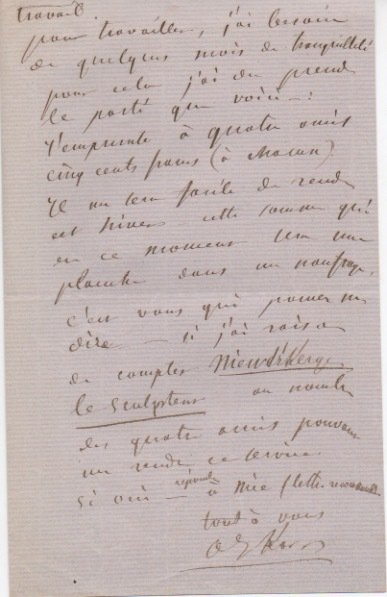 travail.
pour travailler, j'ai besoin
de quelques mois de tranquillité
pour cela j'ai dû prendre
le parti que voici — :
J'emprunte à quatre amis
cinq cents francs (à chacun)
Il me sera facile de rendre
cet hiver cette somme qui
en ce moment sera une
planche dans un naufrage.
c'est vous qui pouvez me
dire — si j'ai raison
de compter Nieuwerkerke
le sculpteur au nombre
des quatre amis pouvant
me rendre ce service
si oui — répondre à Nice (lettre
tout à vous
A Karr